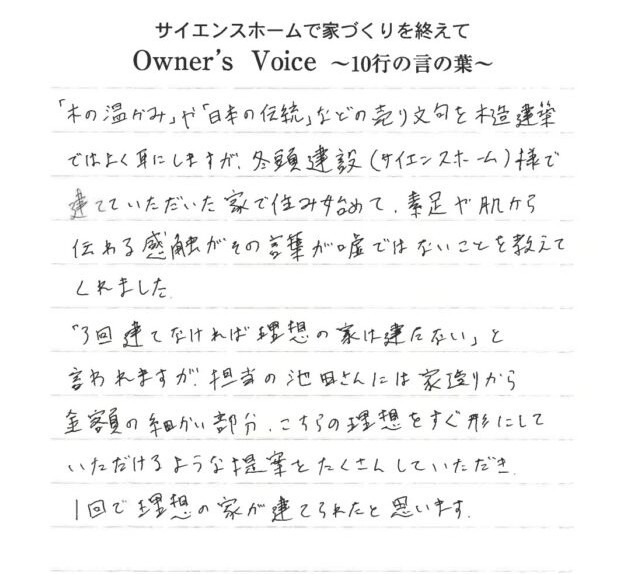 サイエンスホームで家づくりを終えて
Owner's Voice ～10行の言の葉～
「木の温かみ」や「日本の伝統」などの売り文句を木造建築
ではよく耳にしますが、冬頭建設(サイエンスホーム)様で
建てていただいた家で住み始めて、素足や肌から
伝わる感触がその言葉が嘘ではないことを教えて
くれました。
"3回建てなければ理想の家は建たない"と
言われますが、担当の池田さんには家造りから
金額の細かい部分、こちらの理想をすぐ形にして
いただけるような提案をたくさんしていただき、
1回で理想の家が建てられたと思います。